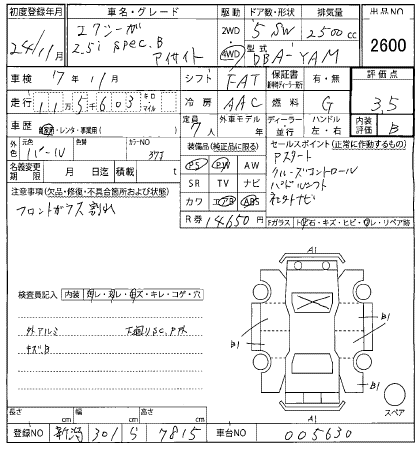 初度登録年月 車名・グレード 駆動 ドア数・形状 排気量 出品NO
24年11月 エクシーガ 2WD 5 SW 2500cc 2600
2.5i spec.B アイサイト 4WD 型式 DBA-YAM
車検 17年11月 シフト FAT 保証書 有・無 評価点
走行 115千603 キロ マイル 冷房 AAC 燃料 G 3.5
車歴 自家用・レンタ・事業用( ) 定員 7人 外車モデル 年 ディーラー 並行 ハンドル 左・右 内装評価 B
外色 元色 パール 色替 カラーNO 37J
装備品(純正品に限る) セールスポイント(正常に作動するもの)
PS PW AW Pスタート
名義変更期限 月 日迄 積載量 t SR TV ナビ クルーズコントロール
注意事項(欠品・修復・不具合箇所および状態) カワ エアB ABS パドルシフト
フロントガラス割れ R券 14650円
Fガラス トビ石・キズ・ヒビ・ワレ・リペア跡
A1
検査員記入 内装 汚レ・スレ・キズ・キレ・コゲ・穴
外アルミ
キズ.B
B1 B1
B1 B1
A1
スペア
長さ cm 幅 cm 高さ cm
登録NO 新潟 301 ら 7815 車台NO 005630